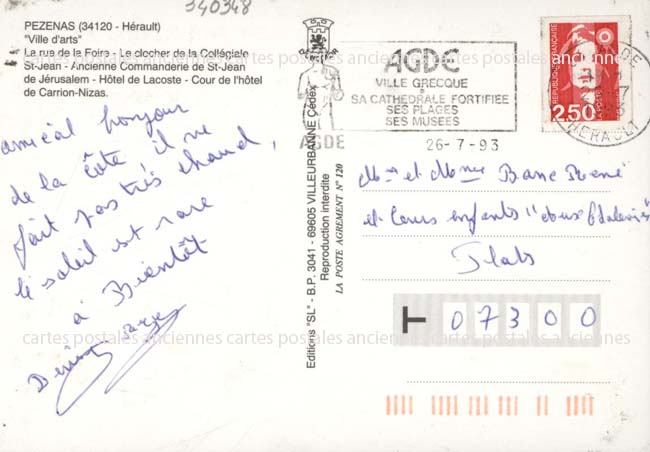 340348
PEZENAS (34120 - Hérault)
"Ville d'arts"
La rue de la Foire - Le clocher de la Collégiale
St-Jean - Ancienne Commanderie de St-Jean
de Jérusalem - Hôtel de Lacoste - Cour de l'hôtel
de Carrion-Nizas.
amical bonjour
de la côte il ne
fait pas très chaud,
le soleil est rare
à Bientôt
Editions "SL" - B.P. 3041 - 69605 VILLEURBANNE Cédex
Reproduction interdite
LA POSTE AGREMENT N° 120
AGDE
AGDE
VILLE GRECQUE
SA CATHEDRALE FORTIFIEE
SES PLAGES
SES MUSEES
26-7-93
DE
HERAULT
REPUBLIQUE FRANÇAISE
LA POSTE
2,50
Mr et Mme Banc René
et leurs enfants
Plats
T 07300
cartes postales anciennes cartes postales anciennes cartes postales anciennes